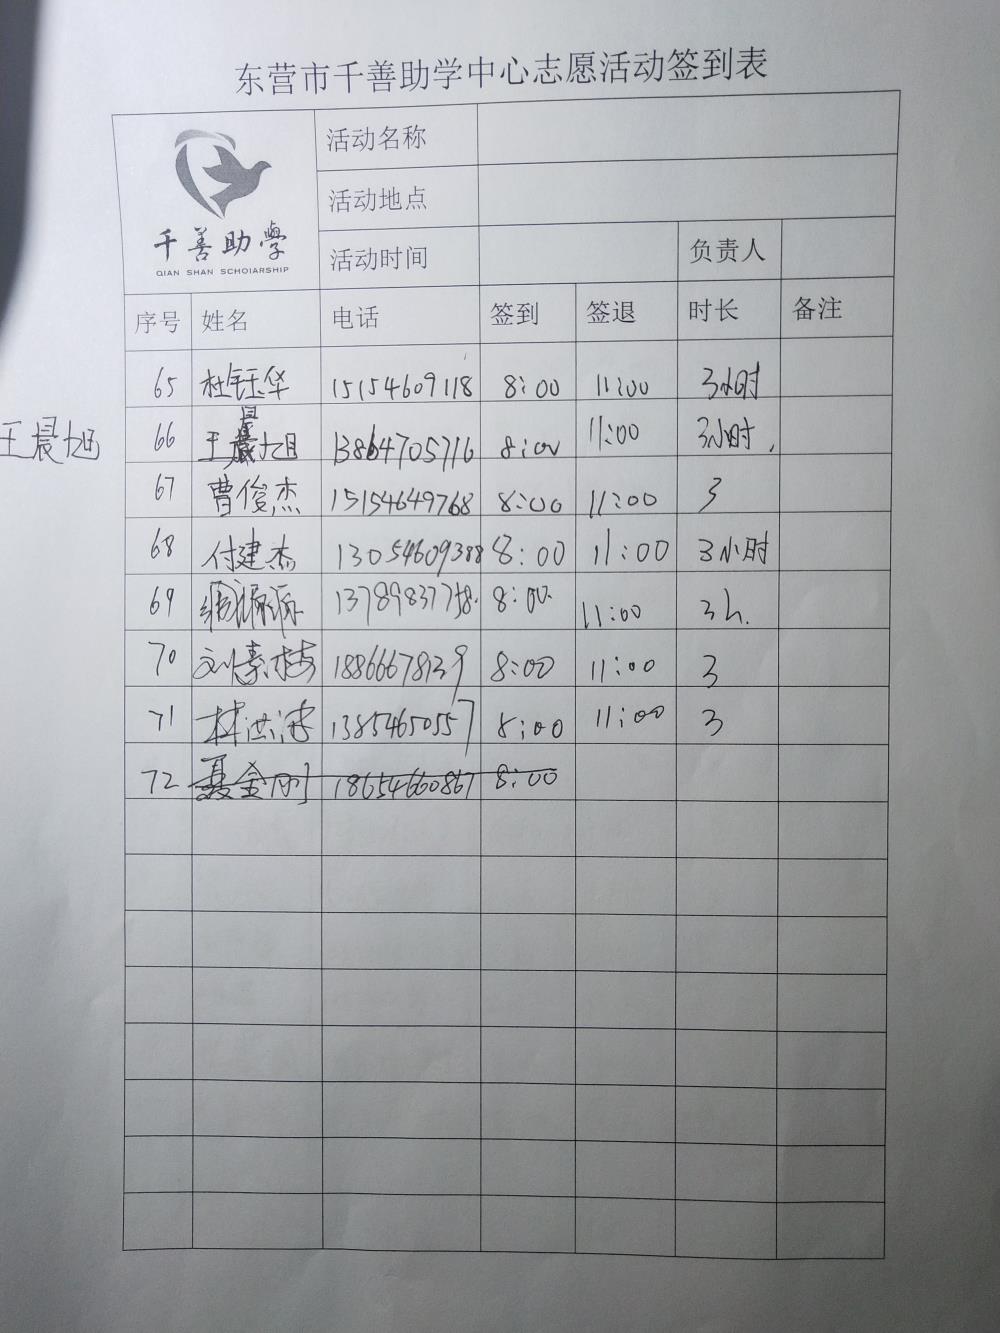 东营市千善助学中心志愿活动签到表
千善助學
QIAN SHAN SCHOIARSHIP
活动名称
活动地点
活动时间 负责人
序号 姓名 电话 签到 签退 时长 备注
65 杜钰华 15154609118 8:00 11:00 3小时
王晨旭 66 王晨旭 13864705716 8:00 11:00 3小时.
67 曹俊杰 15154649768 8:00 11:00 3
68 付建杰 13054609388 8:00 11:00 3小时
69 8:00 11:00 3h.
70 18866678139 8:00 11:00 3
71 13854650557 8:00 11:00 3
72 聂金刚 18654660867 8:00